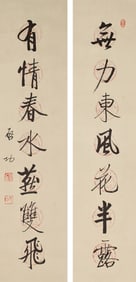 無力東風花半露
有情春水燕雙飛
启功